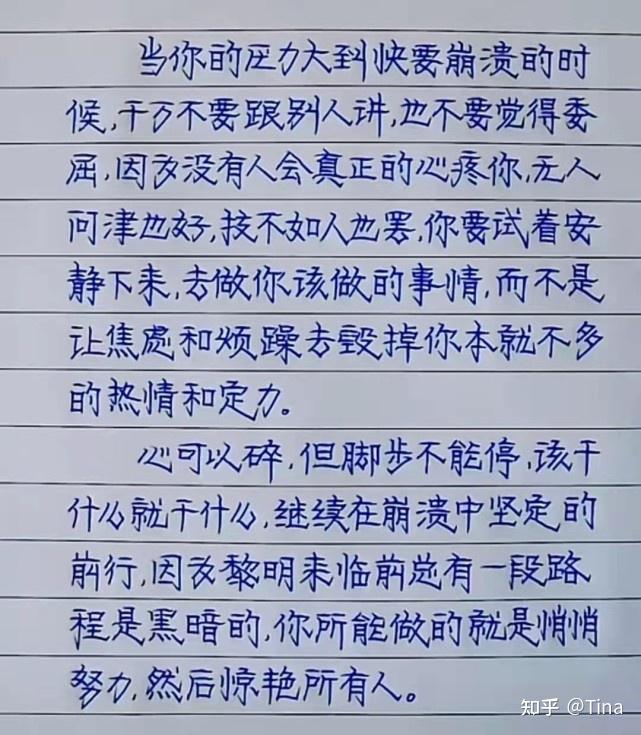 当你的压力大到快要崩溃的时
候,千万不要跟别人讲,也不要觉得委
屈,因为没有人会真正的心疼你,无人
问津也好,技不如人也罢,你要试着安
静下来,去做你该做的事情,而不是
让焦虑和烦躁去毁掉你本就不多
的热情和定力。
心可以碎,但脚步不能停,该干
什么就干什么,继续在崩溃中坚定的
前行,因为黎明来临前总有一段路
程是黑暗的,你所能做的就是悄悄
努力,然后惊艳所有人。
知乎 @Tina